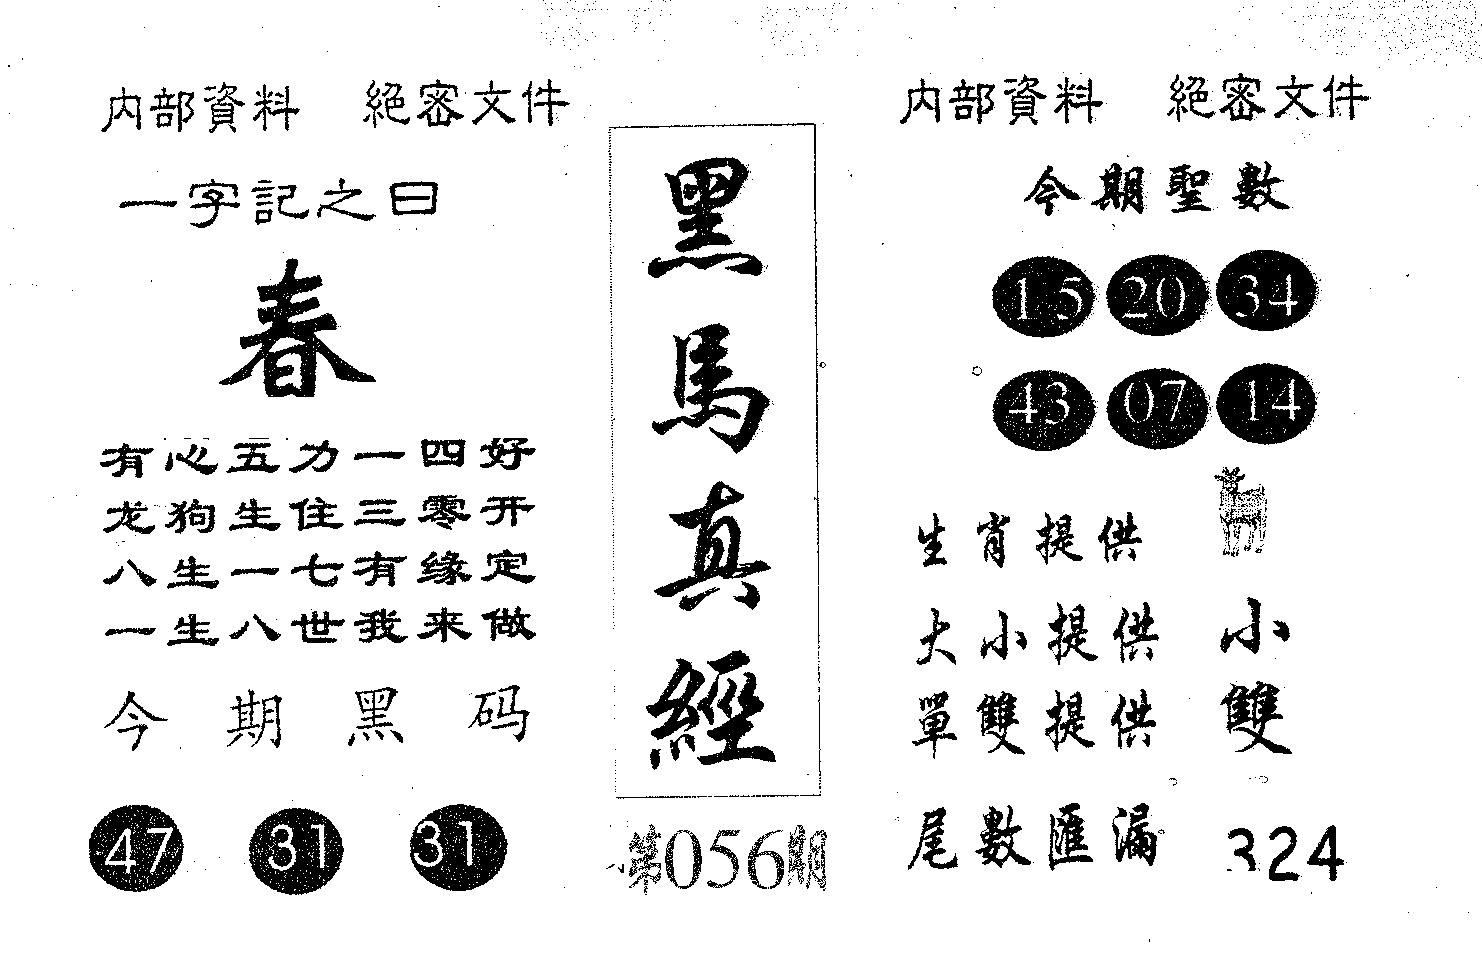 内部資料 絕密文件
一字記之曰
春
有心五力一四好
龙狗生住三零开
八生一七有缘定
一生八世我来做
今期黑码
47 31 31
黑馬真經
第056期
内部資料 絕密文件
今期聖數
15 20 34
43 07 14
生肖提供
大小提供 小
單雙提供 雙
尾數匯漏 324